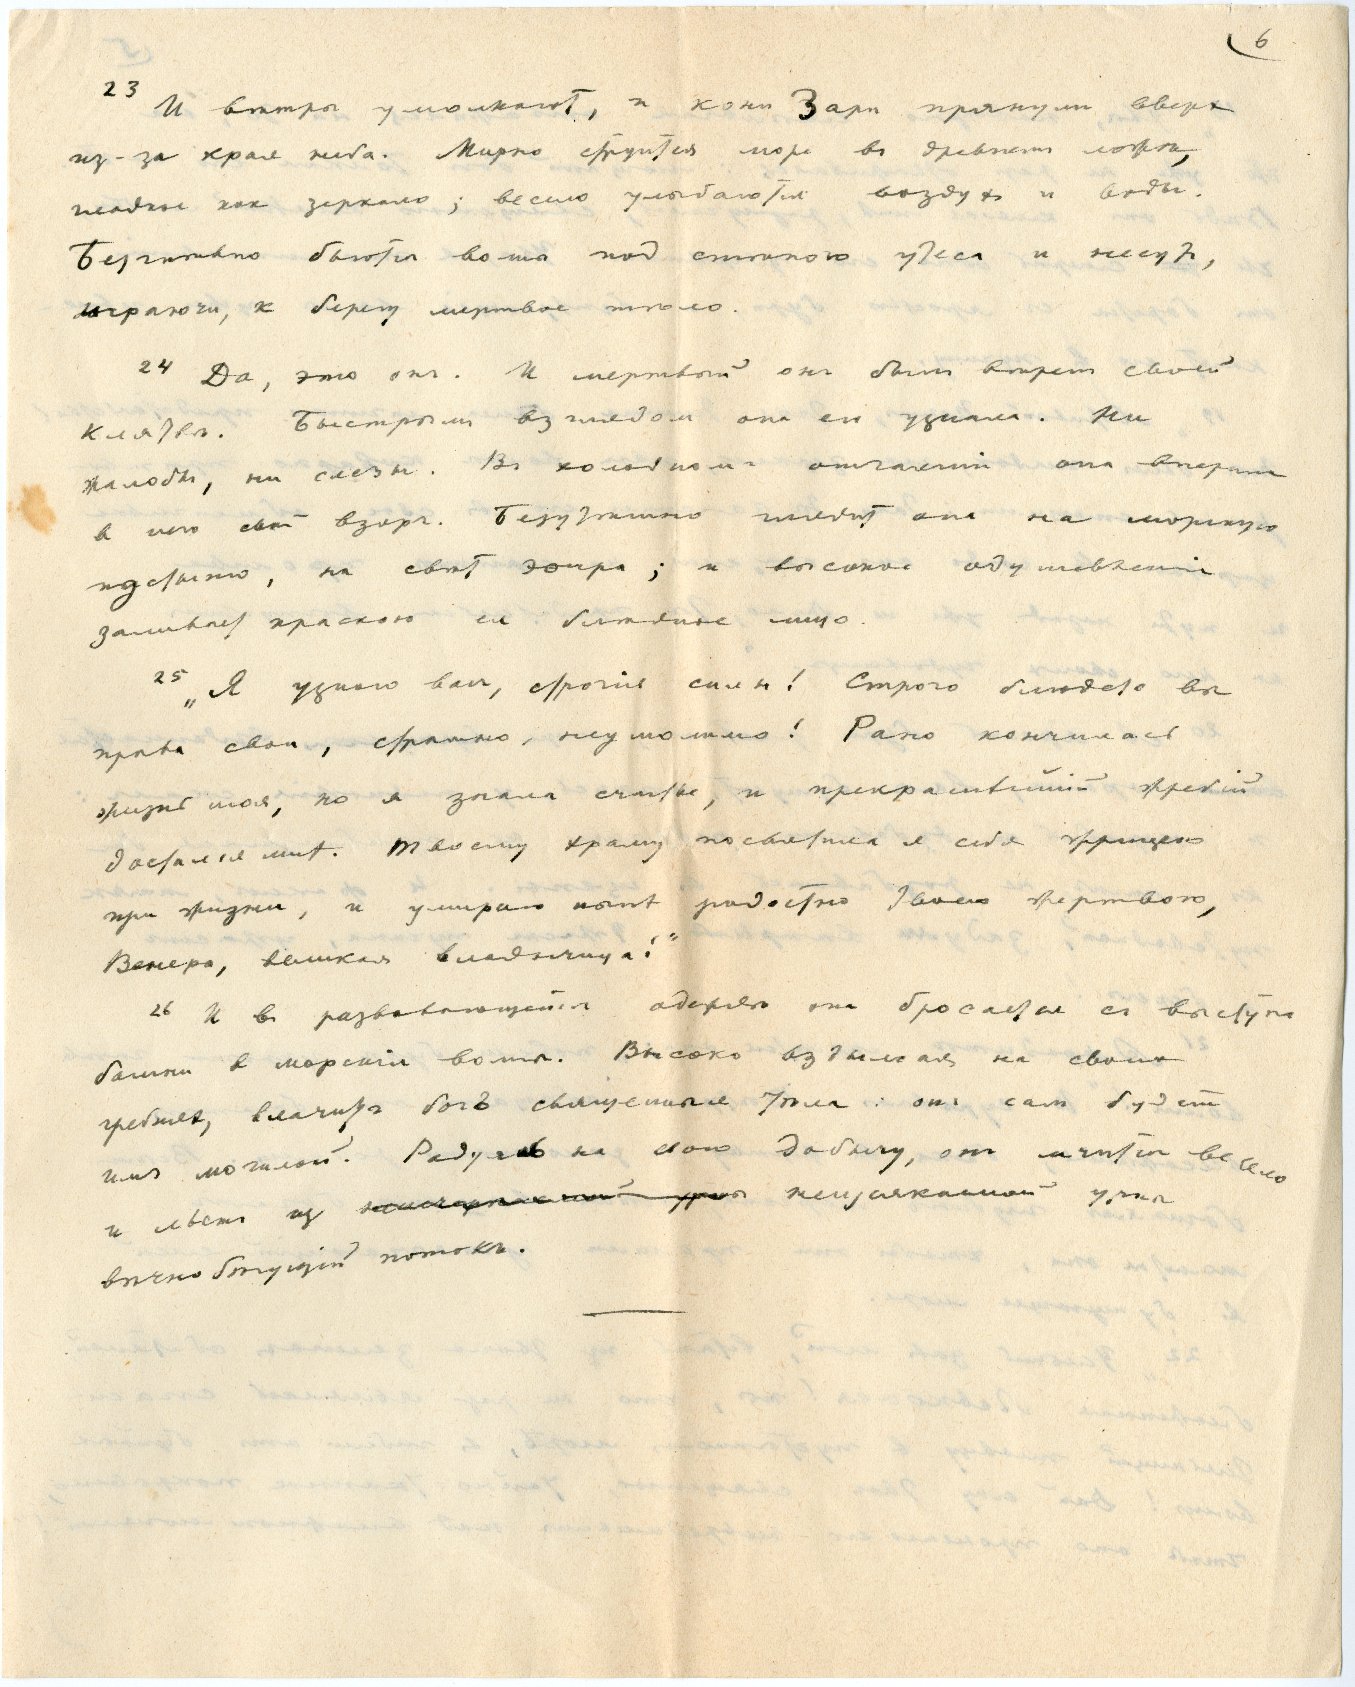 6
23 И вѣтры умолкаютъ, и кони Зари прянули вверх
из-за края неба. Мирно струится море въ древнемъ ложѣ,
гладкое как зеркало; весело улыбаются воздухъ и воды.
Безгнѣвно бьются волны под стѣною утеса и несутъ,
играючи, к берегу мертвое тѣло.
24 Да, это онъ. И мертвый онъ былъ вѣренъ своей
клятвѣ. Быстрымъ взглядом она его узнала. Ни
жалобы, ни слезы. Въ холодномъ отчаянiи она вперила
в него свой взоръ. Безутѣшно глядит она на морскую
пустыню, на свѣт эѳира; и высокое одушевленiе
заливает краскою ея блѣдное лицо.
25 „Я узнаю васъ, строгiя силы! Строго блюдете вы
права свои, страшно, неумолимо! Рано кончилась
жизнь моя, но я знала счастье, и прекраснѣйшiй жребiй
достался мнѣ. Твоему храму посвятила я себя жрицею
при жизни, и умираю нынѣ радостно твоею жертвою,
Венера, великая владычица!"
26 И въ развѣвающейся одеждѣ она бросается съ выступа
башни в морскiя волны. Высоко вздымая на своихъ
гребнях, влачитъ богъ священныя тѣла: онъ сам будетъ
имъ могилой. Радуясь на свою добычу, онъ мчится весело
и льетъ из неисчерпаемой урны неизсякаемой урны
вѣчно бѣгущiй потокъ.